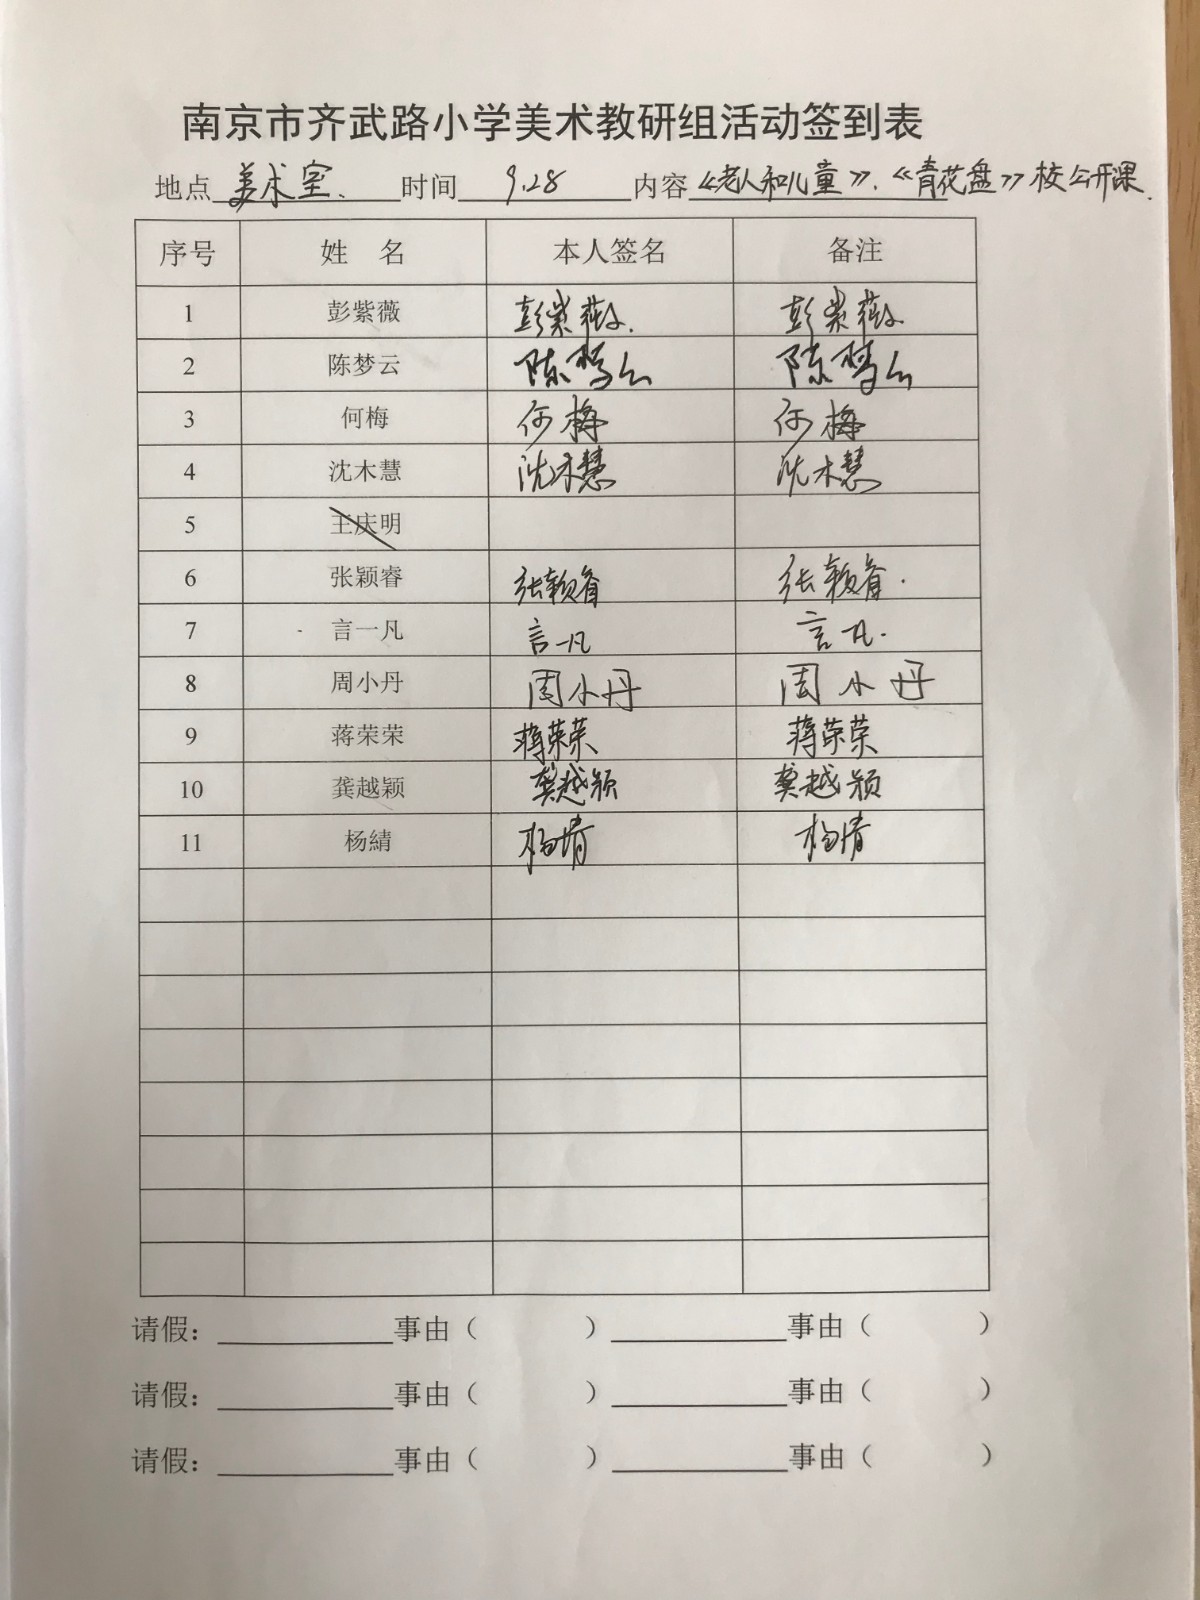 南京市齐武路小学美术教研组活动签到表
地点 美术室、 时间 9.28 内容 《老人和儿童》、《青花盘》校公开课.
序号 姓 名 本人签名 备注
1 彭紫薇 彭紫薇. 彭紫薇.
2 陈梦云 陈梦云 陈梦云
3 何梅 何梅 何梅
4 沈木慧 沈木慧 沈木慧
5 王庆明
6 张颖睿 张颖睿 张颖睿.
7 言一凡 言一凡 言一凡.
8 周小丹 周小丹 周小丹
9 蒋荣荣 蒋荣荣 蒋荣荣
10 龚越颖 龚越颖 龚越颖
11 杨綪 杨婧 杨倩
请假：事由（ ） 事由（ ）
请假：事由（ ） 事由（ ）
请假：事由（ ） 事由（ ）